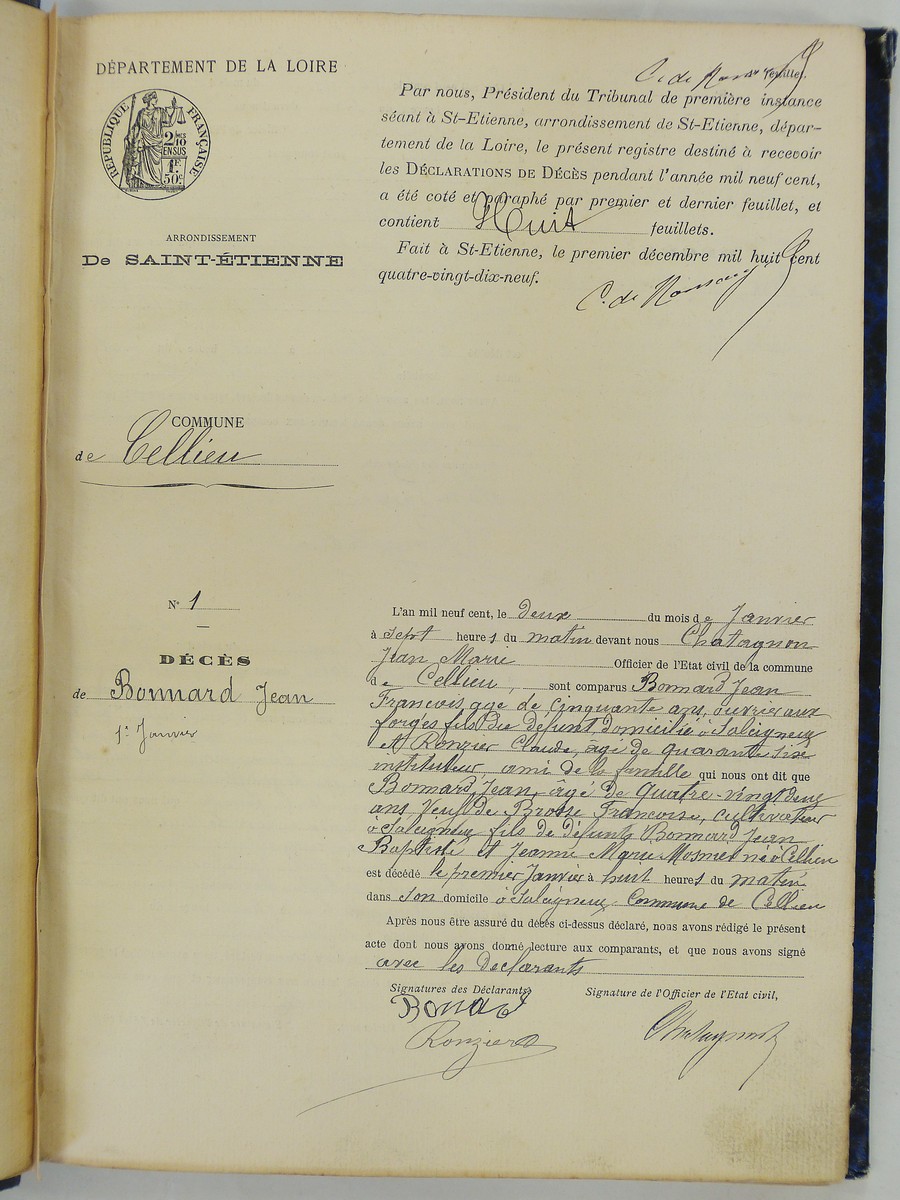 DÉPARTEMENT DE LA LOIRE
RÉPUBLIQUE FRANÇAISE
2/10MES
EN SUS
1F.
50C.
ARRONDISSEMENT
De SAINT-ÉTIENNE
C. de feuillet.
Par nous, Président du Tribunal de première instance
séant à St-Etienne, arrondissement de St-Etienne, dépar-
tement de la Loire, le présent registre destiné à recevoir
les DÉCLARATIONS DE DÉCÈS pendant l'année mil neuf cent,
a été coté et paraphé par premier et dernier feuillet, et
contient Huit feuillets.
Fait à St-Etienne, le premier décembre mil huit cent
quatre-vingt-dix-neuf.
C. de
COMMUNE
de Cellieu
N° 1
DÉCÈS
de Bonnard Jean
1er Janvier
L'an mil neuf cent, le deux du mois de Janvier
à sept heures du matin devant nous Chatagnon
Jean Marie Officier de l'Etat civil de la commune
de Cellieu, sont comparus Bonnard Jean
Francois, age de cinquante ans, ouvrier aux
forges fils du défunt, domicilié à Salcigneux
et Ronzier Claude, âgé de quarante six
instituteur, ami de la famille qui nous ont dit que
Bonnard Jean, âgé de quatre-vingt deux
ans Veuf de Brosse Francoise, cultivateur
à Salcigneux fils de défunts Bonnard Jean
Baptiste et Jeanne Marie Mosnier né à Cellieu
est décédé le premier Janvier à huit heures du matin
dans son domicile à Salcigneux Commune de Cellieu
Après nous être assuré du décès ci-dessus déclaré, nous avons rédigé le présent
acte dont nous avons donné lecture aux comparants, et que nous avons signé
avec les declarants
Signatures des Déclarants Signature de l'Officier de l'Etat civil,
Bonnard
Ronzier Chatagnon